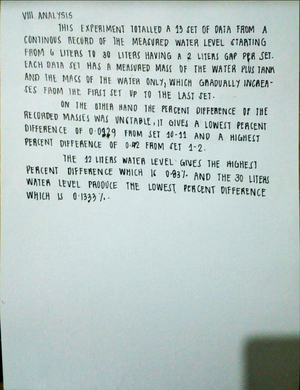 VIII. ANALYSIS
THIS EXPERIMENT TOTALLED A 13 SET OF DATA FROM A
CONTINOUS RECORD OF THE MEASURED WATER LEVEL STARTING
FROM 6 LITERS TO 30 LITERS HAVING A 2 LITERS GAP PER SET.
EACH DATA SET HAS A MEASURED MASS OF THE WATER PLUS TANK
AND THE MASS OF THE WATER ONLY, WHICH GRADUALLY INCREA-
SES FROM THE FIRST SET UP TO THE LAST SET.
ON THE OTHER HAND THE PERCENT DIFFERENCE OF THE
RECORDED MASSES WAS UNSTABLE, IT GIVES A LOWEST PERCENT
DIFFERENCE OF FROM SET 10-11 AND A HIGHEST
PERCENT DIFFERENCE OF 0.42 FROM SET 1-2.
THE 12 LITERS WATER LEVEL GIVES THE HIGHEST
PERCENT DIFFERENCE WHICH IS 0.83% AND THE 30 LITERS
WATER LEVEL PRODUCE THE LOWEST PERCENT DIFFERENCE
WHICH IS 0.1333%.